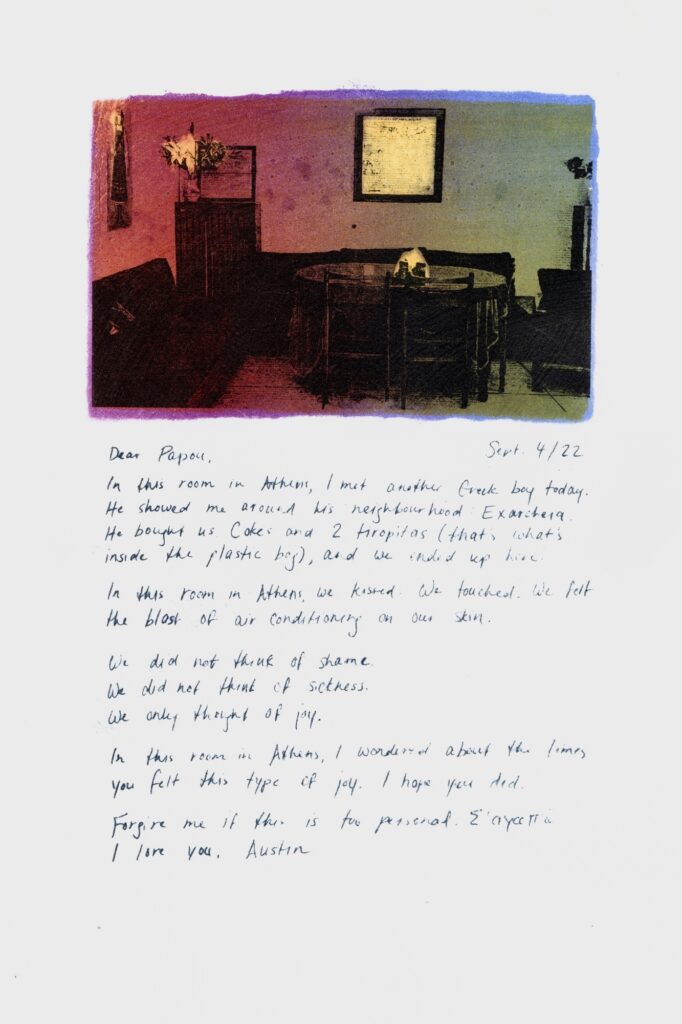 Dear Papou,
Sept. 4/22
In this room in Athens, I met another Greek boy today.
He showed me around his neighbourhood Exarcheia.
He bought us Cokes and 2 tiropitas (that's what's
inside the plastic bag), and we ended up here.
In this room in Athens, we kissed. We touched. We felt
the blast of air conditioning on our skin.
We did not think of shame.
We did not think of sickness.
We only thought of joy.
In this room in Athens, I wondered about the times
you felt this type of joy. I hope you did.
Forgive me if this is too personal. Σ'αγαπώ
I love you, Austin